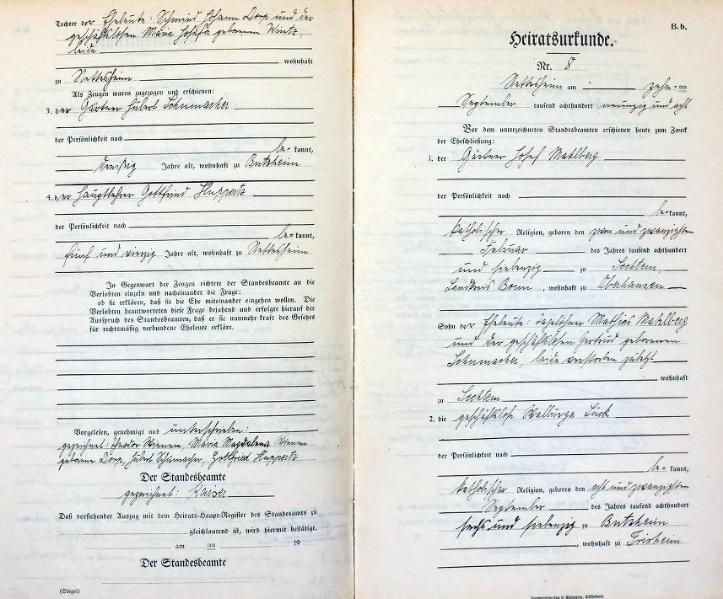 Tochter der Eheleute: Schmied Johann Dorp und der
geschäftslosen Maria Josefa geborenen Wirtz,
beide
wohnhaft
zu Nettesheim
Als Zeugen waren zugezogen und erschienen:
3. der Gärtner Hubert Schumacher
der Persönlichkeit nach
be- kannt,
dreißig Jahre alt, wohnhaft zu Butzheim
4. der Hauptlehrer Gottfried Huppertz
der Persönlichkeit nach
be- kannt,
fünf und vierzig Jahre alt, wohnhaft zu Nettesheim
In Gegenwart der Zeugen richtete der Standesbeamte an die
Verlobten einzeln und nacheinander die Frage:
ob sie erklären, daß sie die Ehe miteinander eingehen wollen. Die
Verlobten beantworteten diese Frage bejahend und erfolgte hierauf der
Ausspruch des Standesbeamten, daß er sie nunmehr kraft des Gesetzes
für rechtmäßig verbundene Eheleute erkläre.
Vorgelesen, genehmigt und unterschrieben:
gezeichnet: Theodor Maria Magdalena
geborene Dorp, Hubert Schumacher, Gottfried Huppertz
Der Standesbeamte
gezeichnet: Kaiser
Daß vorstehender Auszug mit dem Heirats-Haupt-Register des Standesamts zu
gleichlautend ist, wird hiermit bestätigt.
am ten 19
Der Standesbeamte
(Siegel)
B. b.
Heiratsurkunde.
Nr. 8
Nettesheim am zehn-ten
September tausend achthundert neunzig und acht
Vor dem unterzeichneten Standesbeamten erschienen heute zum Zweck
der Eheschließung:
1. der Gärtner Josef Mahlberg
der Persönlichkeit nach
be- kannt,
katholischer Religion, geboren den zwei und zwanzigsten
Februar des Jahres tausend achthundert
und siebenzig zu Sechtem,
Landkreis Bonn, wohnhaft zu Oberhausen
Sohn der Eheleute: Tagelöhner Mathias Mahlberg
und der geschäftslosen Gertrud geborenen
Schumacher, beide verstorben zuletzt
wohnhaft
zu Sechtem
2. die geschäftslose Walburga Lück
der Persönlichkeit nach
be- kannt,
katholischer Religion, geboren den acht und zwanzigsten
September des Jahres tausend achthundert
sechs und siebenzig zu Butzheim
, wohnhaft zu Frixheim